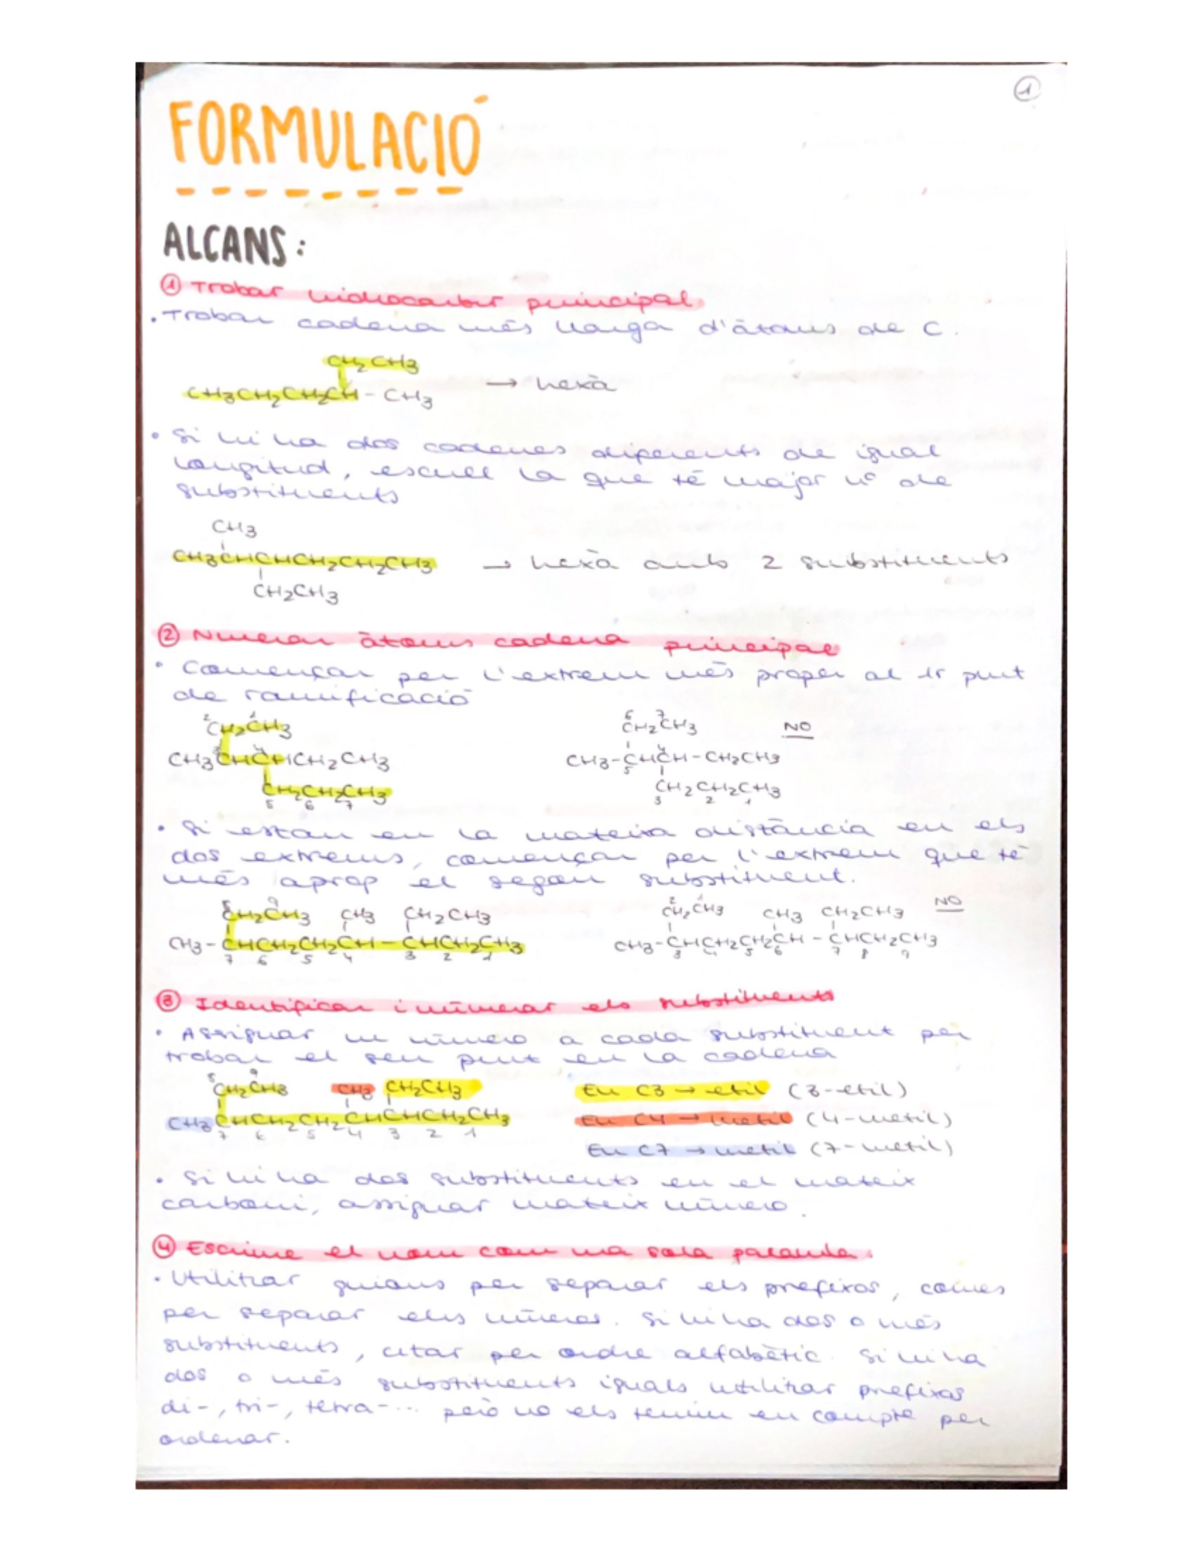 1
FORMULACIÓ
ALCANS:
① Trobar hidrocarbur principal.
• Trobar cadena més llarga d'àtoms de C.
CH2CH3
CH3CH2CH2CH - CH3 → hexà
• Si hi ha dos cadenes diferents de igual
longitud, escull la que té major nº de
substituents
CH3
CH3CHCHCH2CH2CH3 → hexà amb 2 substituents
CH2CH3
② Numerar àtoms cadena principal
• Començar per l'extrem més proper al 1r punt
de ramificació
2 1 6 7
CH2CH3 CH2CH3 NO
CH3CHCHCH2CH3 CH3-CHCH-CH2CH3
3 4 5 4
CH2CH2CH3 CH2CH2CH3
5 6 7 3 2 1
• Si estan en la mateixa distància en els
dos extrems, començar per l'extrem que té
més aprop el segon substituent.
8 9 2 1 NO
CH2CH3 CH3 CH2CH3 CH2CH3 CH3 CH2CH3
CH3-CHCH2CH2CH-CHCH2CH3 CH3-CHCH2CH2CH-CHCH2CH3
7 6 5 4 3 2 1 3 4 5 6 7 8 9
③ Identificar i númerar els substituents
• Assignar un número a cada substituent per
trobar el seu punt en la cadena
8 9
CH2CH3 CH3 CH2CH3 En C3 → etil (3-etil)
CH3CHCH2CH2CHCHCH2CH3 En C4 → metil (4-metil)
7 6 5 4 3 2 1
En C7 → metil (7-metil)
• Si hi ha dos substituents en el mateix
carboni, assignar mateix número.
④ Escriure el nom com una sola paraula.
• Utilitzar guions per separar els prefixos, comes
per separar els números. Si hi ha dos o més
substituents, citar per ordre alfabètic. Si hi ha
dos o més substituents iguals utilitzar prefixos
di-, tri-, tetra-... però no els tenim en compte per
ordenar.